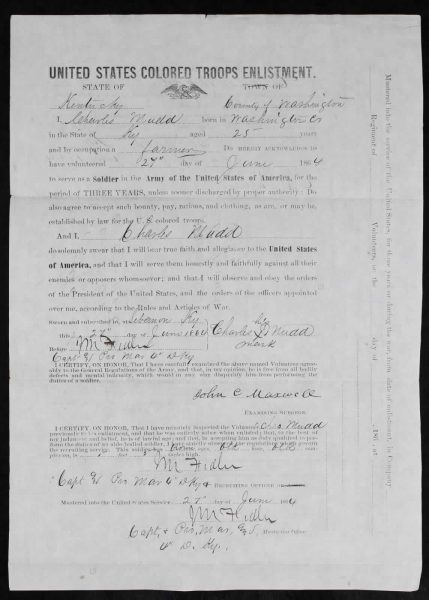 UNITED STATES COLORED TROOPS ENLISTMENT.
STATE OF TOWN OF
Kentucky County of Washington
I, Charles Mudd born in Washington Co
in the State of Ky aged 25 years
and by occupation a farmer DO HEREBY ACKNOWLEDGE to
have volunteered 27" day of June 1864
to serve as a Soldier in the Army of the United States of America, for the
period of THREE YEARS, unless sooner discharged by proper authority: Do
also agree to accept such bounty, pay, rations, and clothing, as are, or may be,
established by law for the U. S. colored troops.
And I, Charles Mudd
do solemnly swear that I will bear true faith and allegiance to the United States
of America, and that I will serve them honestly and faithfully against all their
enemies or opposers whomsoever; and that I will observe and obey the orders
of the President of the United States, and the orders of the officers appointed
over me, according to the Rules and Articles of War.
Sworn and subscribed to, at Lebanon Ky
this 27" day of June 1864 Charles his X Mudd
Before J M Fidler mark
Capt & Pro Mar 4" D Ky
I CERTIFY, ON HONOR, That I have carefully examined the above named Volunteer agreeably
to the General Regulations of the Army, and that, in my opinion, he is free from all bodily
defects and mental infirmity, which would in any way disqualify him from performing the
duties of a soldier.
John C Maxwell
EXAMINING SURGEON.
I CERTIFY, ON HONOR, That I have minutely inspected the Volunteer, Chas Mudd
previously to his enlistment, and that he was entirely sober when enlisted; that, to the best
of my judgment and belief, he is of lawful age; and that, in accepting him as duly qualified to
perform the duties of an able-bodied soldier, I have strictly observed the regulations which govern
the recruiting service. This soldier has eyes, hair, com-
plexion, is feet inches high.
J M Fidler
Capt & Pro Mar 4" D Ky & RECRUITING OFFICER
Mustered into the United States Service 27" day of June 1864
J M Fidler
Capt, & Pro, Mar, Mustering Officer
4" D. Ky.
Mustered into the service of the United States, for three years or during the war, from date of enlistment, in Company
Regiment of Volunteers, on the day of 186 , at